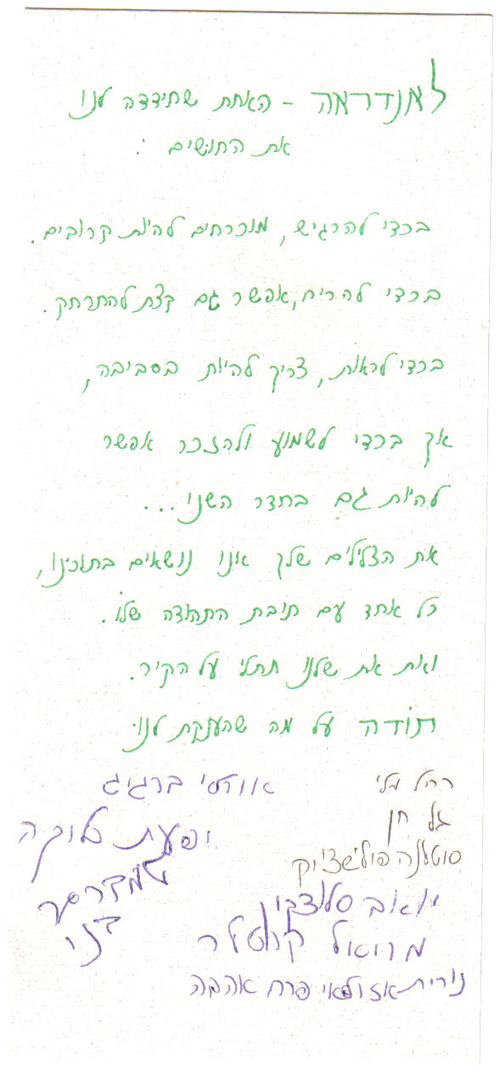 לאנדראה - האחת שחידדה לנו
את החושים.
בכדי להרגיש, מוכרחים להיות קרובים.
בכדי להריח, אפשר גם קצת להתרחק.
בכדי לראות, צריך להיות בסביבה,
אך בכדי לשמוע ולהזכר אפשר
להיות גם בחדר השני...
את הצלילים שלך אנו נושאים בתוכינו,
כל אחד עם תיבת התהודה שלו.
ואת את שלנו תתלי על הקיר.
תודה על מה שהענקת לנו
אורלי ברגיג
רחל מלי
גל חן
יפעת מלוקה
סוטלנה פולישצ'וק
יואב סלוצקין
דני
מרואל קרוטלר
נורית אזולאי פרח אהבה